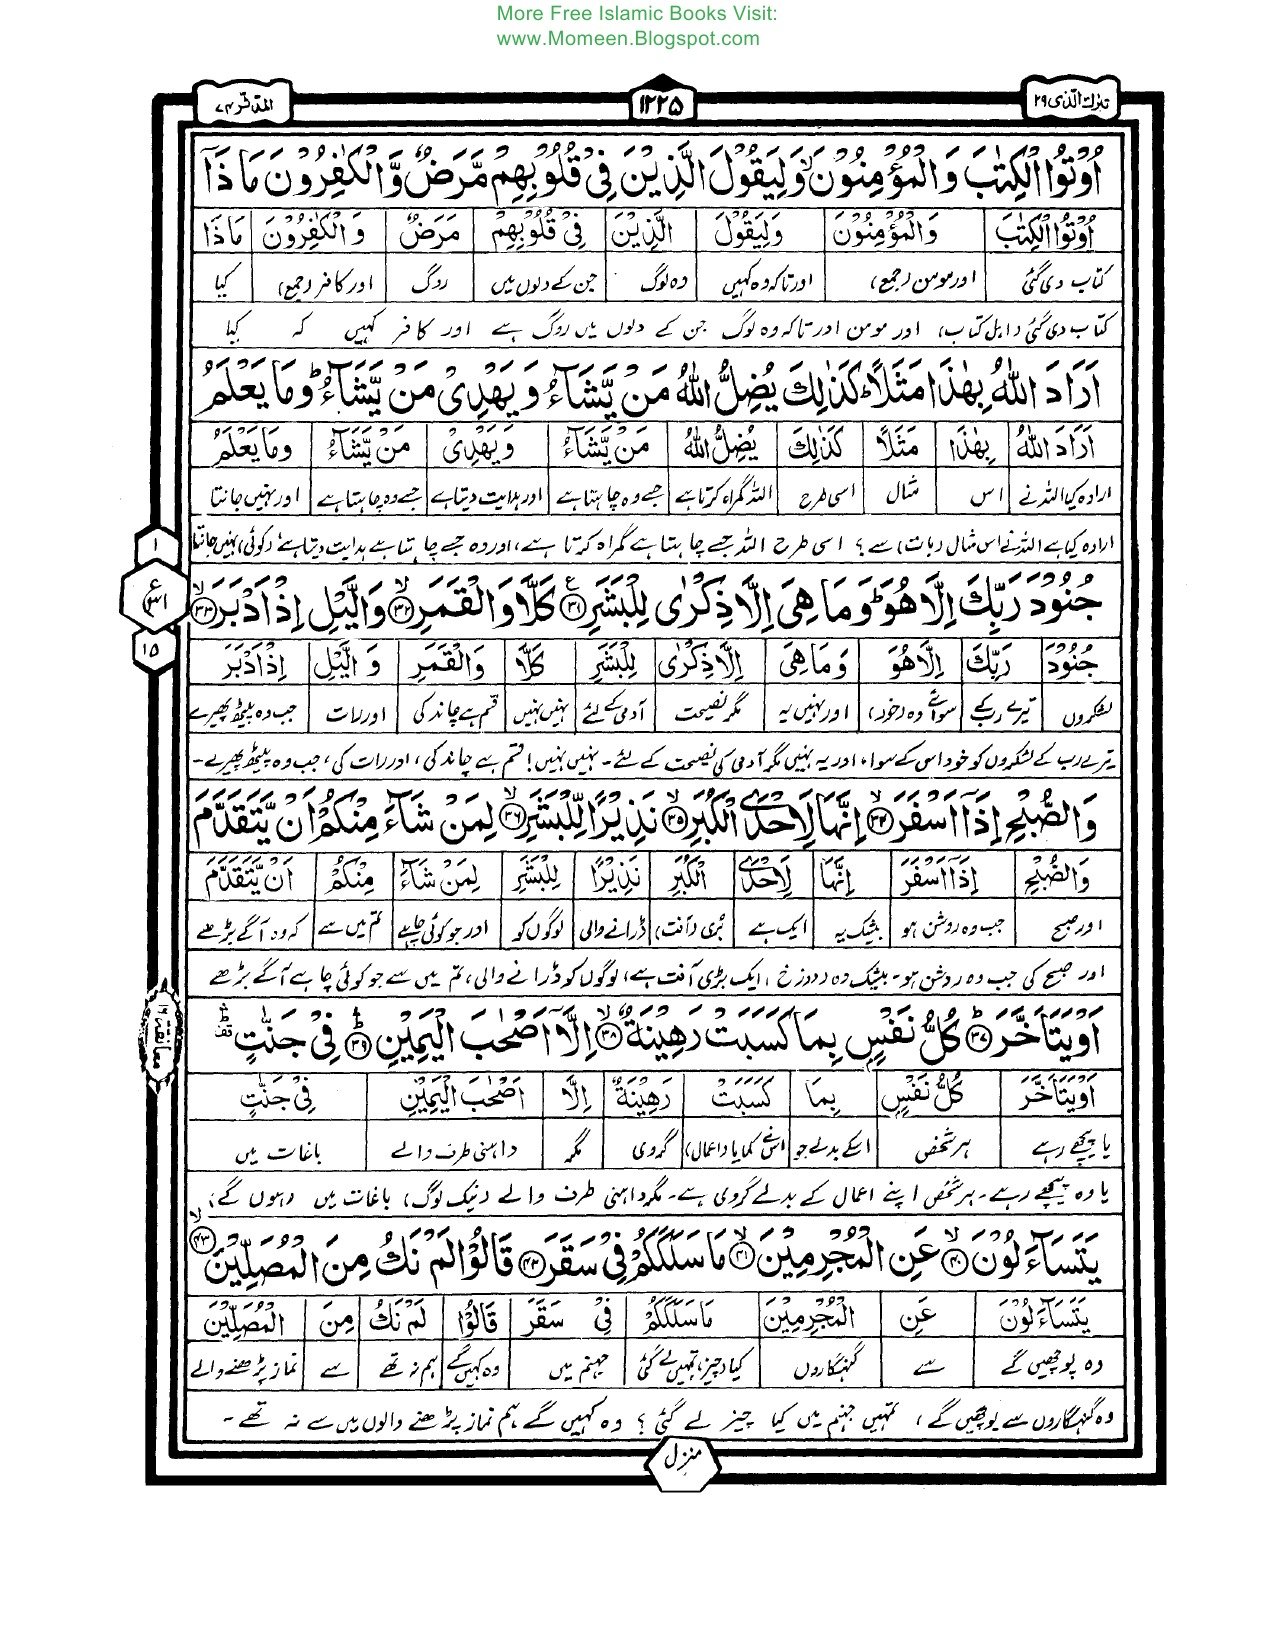 More Free Islamic Books Visit:
www.Momeen.Blogspot.com
تبٰرك الّذی ۲۹
۱۲۲۵
المدّثّر ۷۴
اُوْتُوا الْكِتٰبَ وَ الْمُؤْمِنُوْنَ ۙ وَ لِيَقُوْلَ الَّذِيْنَ فِيْ قُلُوْبِهِمْ مَّرَضٌ وَّ الْكٰفِرُوْنَ مَا ذَاۤ
اُوْتُوا الْكِتٰبَ وَ الْمُؤْمِنُوْنَ وَ لِيَقُوْلَ الَّذِيْنَ فِيْ قُلُوْبِهِمْ مَرَضٌ وَ الْكٰفِرُوْنَ مَا ذَا
کتاب دی گئی اور مومن (جمع) اور تاکہ وہ کہیں وہ لوگ جن کے دلوں میں روگ اور کافر (جمع) کیا
کتاب دی گئی (اہل کتاب) اور مومن اور تاکہ وہ لوگ جن کے دلوں میں روگ ہے اور کافر کہیں کہ کیا
اَرَادَ اللّٰهُ بِهٰذَا مَثَلًا ؕ كَذٰلِكَ يُضِلُّ اللّٰهُ مَنْ يَّشَآءُ وَ يَهْدِيْ مَنْ يَّشَآءُ ؕ وَ مَا يَعْلَمُ
اَرَادَ اللّٰهُ بِهٰذَا مَثَلًا كَذٰلِكَ يُضِلُّ اللّٰهُ مَنْ يَّشَآءُ وَ يَهْدِيْ مَنْ يَّشَآءُ وَ مَا يَعْلَمُ
ارادہ کیا اللہ نے اس مثال اسی طرح اللہ گمراہ کرتا ہے جسے وہ چاہتا ہے اور ہدایت دیتا ہے جسے وہ چاہتا ہے اور نہیں جانتا
ارادہ کیا ہے اللہ نے اس مثال (بات) سے؟ اسی طرح اللہ جسے چاہتا ہے گمراہ کرتا ہے، اور وہ جسے چاہتا ہے ہدایت دیتا ہے (کوئی) نہیں جانتا
جُنُوْدَ رَبِّكَ اِلَّا هُوَ ؕ وَ مَا هِيَ اِلَّا ذِكْرٰى لِلْبَشَرِ ۳۱ كَلَّا وَ الْقَمَرِ ۳۲ وَ الَّيْلِ اِذْ اَدْبَرَ ۳۳
۱
ع
۳۱
۱۵
جُنُوْدَ رَبِّكَ اِلَّا هُوَ وَ مَا هِيَ اِلَّا ذِكْرٰى لِلْبَشَرِ كَلَّا وَ الْقَمَرِ وَ الَّيْلِ اِذْ اَدْبَرَ
لشکروں تیرے رب کے سوائے وہ (خود) اور نہیں یہ مگر نصیحت آدمی کے لئے نہیں نہیں قسم ہے چاند کی اور رات جب وہ پیٹھ پھیرے
تیرے رب کے لشکروں کو خود اس کے سوا، اور یہ نہیں مگر آدمی کی نصیحت کے لئے۔ نہیں نہیں! قسم ہے چاند کی، اور رات کی، جب وہ پیٹھ پھیرے۔
وَ الصُّبْحِ اِذَاۤ اَسْفَرَ ۳۴ اِنَّهَا لَاِحْدَى الْكُبَرِ ۳۵ نَذِيْرًا لِّلْبَشَرِ ۳۶ لِمَنْ شَآءَ مِنْكُمْ اَنْ يَّتَقَدَّمَ
وَ الصُّبْحِ اِذَاۤ اَسْفَرَ اِنَّهَا لَاِحْدَى الْكُبَرِ نَذِيْرًا لِلْبَشَرِ لِمَنْ شَآءَ مِنْكُمْ اَنْ يَّتَقَدَّمَ
اور صبح جب وہ روشن ہو بیشک یہ ایک ہے بڑی (آفت) ڈرانے والی لوگوں کو اور جو کوئی چاہے تم میں سے کہ وہ آگے بڑھے
اور صبح کی جب وہ روشن ہو۔ بیشک وہ (دوزخ) ایک بڑی آفت ہے، لوگوں کو ڈرانے والی، تم میں سے جو کوئی چاہے آگے بڑھے
اَوْ يَتَاَخَّرَ ۳۷ كُلُّ نَفْسٍۭ بِمَا كَسَبَتْ رَهِيْنَةٌ ۳۸ اِلَّاۤ اَصْحٰبَ الْيَمِيْنِ ۳۹ فِيْ جَنّٰتٍ
معانقة ۱۶
اَوْ يَتَاَخَّرَ كُلُّ نَفْسٍ بِمَا كَسَبَتْ رَهِيْنَةٌ اِلَّا اَصْحٰبَ الْيَمِيْنِ فِيْ جَنّٰتٍ
یا پیچھے رہے ہر شخص اسکے بدلے جو اس نے کمایا (اعمال) گروی مگر داہنی طرف والے باغات میں
یا وہ پیچھے رہے۔ ہر شخص اپنے اعمال کے بدلے گروی ہے۔ مگر داہنی طرف والے (نیک لوگ) باغات میں (ہوں گے)
يَتَسَآءَلُوْنَ ۴۰ عَنِ الْمُجْرِمِيْنَ ۴۱ مَا سَلَكَكُمْ فِيْ سَقَرَ ۴۲ قَالُوْا لَمْ نَكُ مِنَ الْمُصَلِّيْنَ ۴۳
يَتَسَآءَلُوْنَ عَنِ الْمُجْرِمِيْنَ مَا سَلَكَكُمْ فِيْ سَقَرَ قَالُوْا لَمْ نَكُ مِنَ الْمُصَلِّيْنَ
وہ پوچھیں گے سے گنہگاروں کیا (چیز) تمہیں لے گئی جہنم میں وہ کہیں گے ہم نہ تھے سے نماز پڑھنے والے
وہ گنہگاروں سے پوچھیں گے، تمہیں جہنم میں کیا چیز لے گئی؟ وہ کہیں گے ہم نماز پڑھنے والوں میں سے نہ تھے۔
منزل